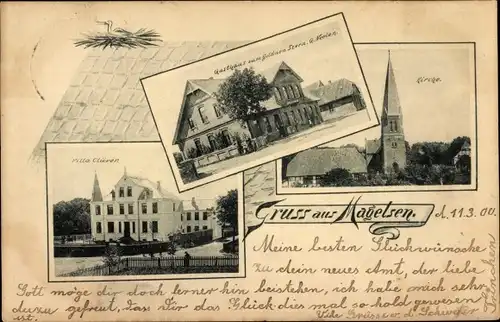 Gasthaus zum goldnen Stern.
Kirche.
Villa Clüver.
Gruss aus Magelsen.
d. 11.3.00.
Meine besten Glückwünsche
zu dein neues Amt, der liebe
Gott möge dir doch ferner hin beistehen, ich habe mich sehr
dazu gefreut, dass Dir das Glück dies mal so hold gewesen
ist.
Viele Grüsse v. d. Schwester